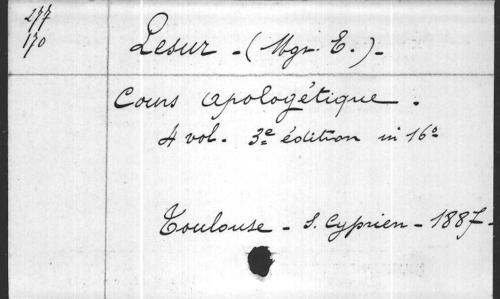 277
170
Lesur - (Mgr. E.) -
Cours apologétique.
4 vol. 3e édition in 16o
Toulouse - S. Cyprien - 1887 -